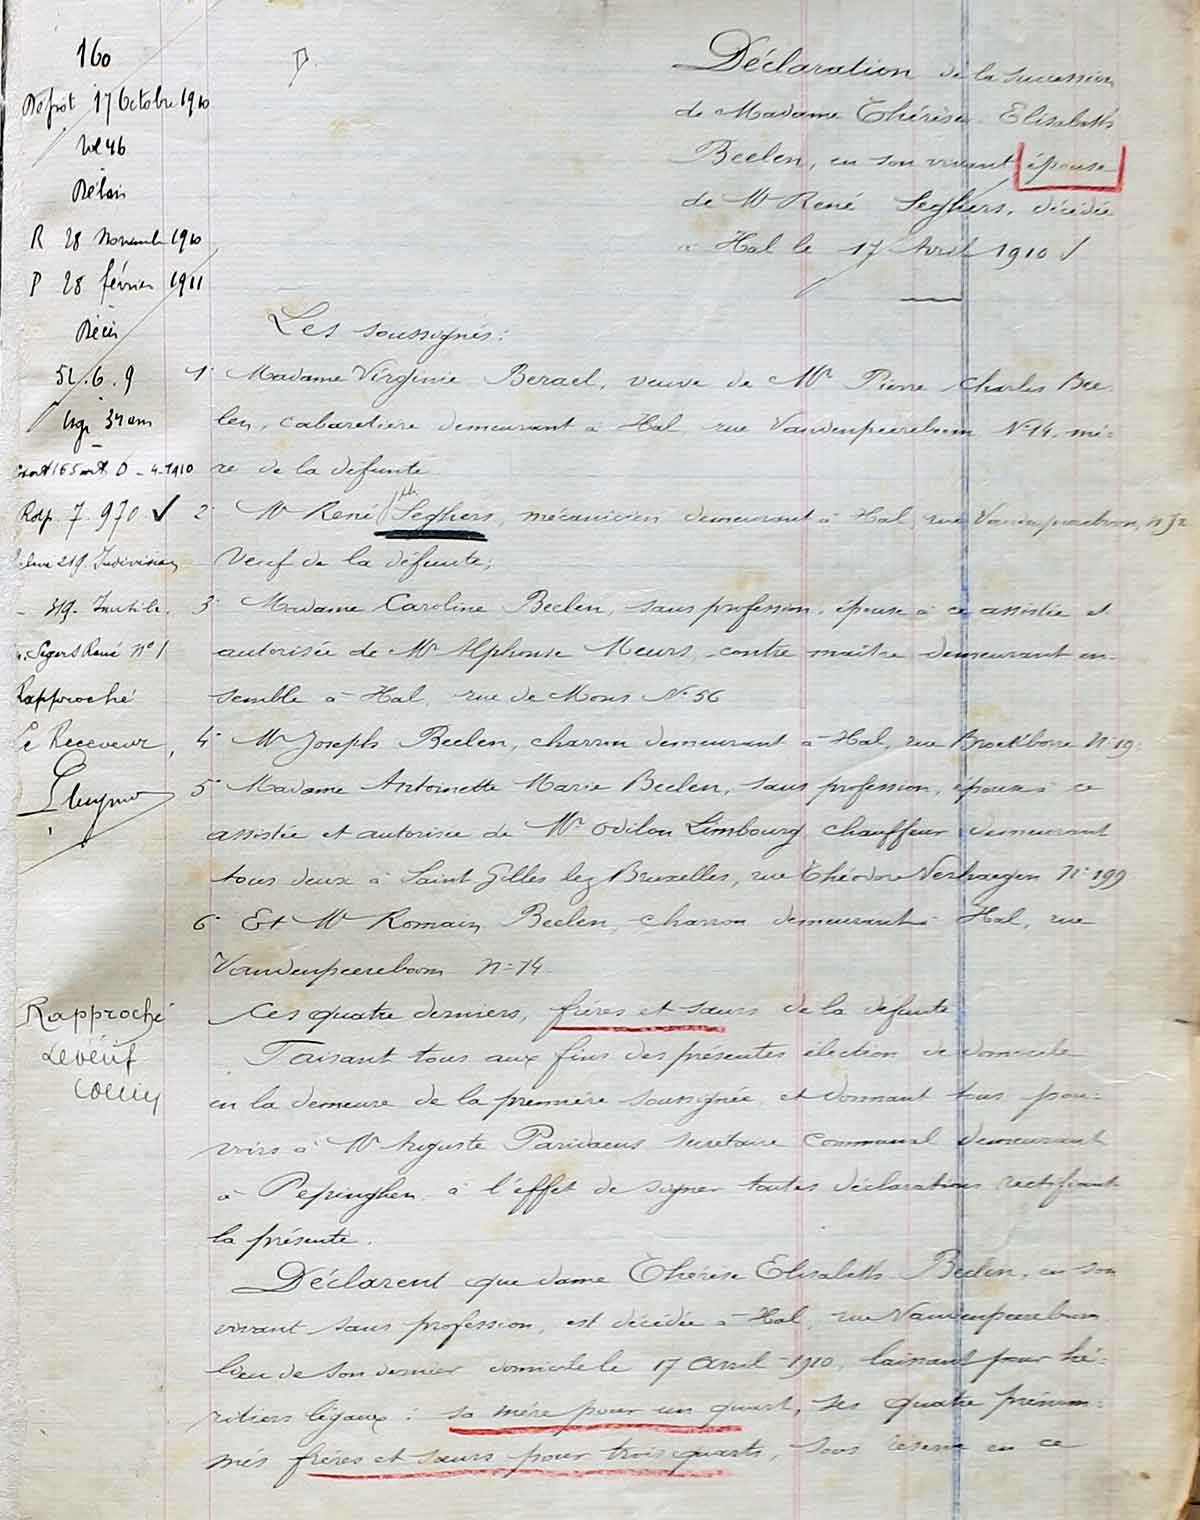 160
Dépôt 17 Octobre 1910
Vol 46
Délai
R 28 Novembre 1910
P 28 février 1911
Décès
51.6.9
âge 34 ans
4-1910
7.970 ✓
219. Indivision
319. Inutile.
Segers René N° 1
Rapproché
Le Receveur,
Déclaration de la succession
de Madame Thérèse Elisabeth
Beelen, en son vivant épouse
de Mr René Seghers, décédée
à Hal le 17 Avril 1910
Les soussignés:
1° Madame Virginie Berael, veuve de Mr Pierre Charles Bee-
len, cabaretière demeurant à Hal, rue Vandenpeereboom N° 14, mè-
re de la défunte
2° Mr René Seghers, mécanicien demeurant à Hal, rue Vandenpeereboom, n° 32
Veuf de la défunte;
3° Madame Caroline Beelen, sans profession, épouse à ce assistée et
autorisée de Mr Alphonse Meurs, contre maître demeurant en-
semble à Hal, rue de Mons N° 56
4° Mr Joseph Beelen, charron demeurant à Hal, rue Broekborre N° 19
5° Madame Antoinette Marie Beelen, sans profession, épouse à ce
assistée et autorisée de Mr Odilon Limbourg chauffeur demeurant
tous deux à Saint Gilles lez Bruxelles, rue Théodore Verhaegen N° 199
6° Et Mr Romain Beelen, charron demeurant à Hal, rue
Vandenpeereboom N° 14
Ces quatre derniers, frères et sœurs de la défunte
Rapproché
Faisant tous aux fins des présentes élection de domicile
en la demeure de la première soussignée et donnant tous pou-
voirs à Mr Auguste Paridaens secrétaire communal demeurant
à Pepinghen, à l'effet de signer toutes déclarations rectifiant
la présente.
Déclarent que dame Thérèse Elisabeth Beelen, en son
vivant sans profession, est décédée à Hal, rue Vandenpeereboom
lieu de son dernier domicile le 17 Avril 1910, laissant pour hé-
ritiers légaux: sa mère pour un quart, ses quatre prénom-
més frères et sœurs pour trois quarts, sous réserve en ce